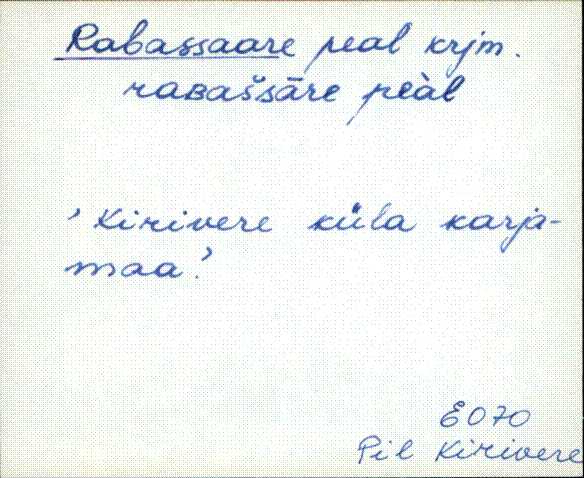 Rabassaare peal krjm.
raʙašsāre peàl
’Kirivere küla karja-
maa.’
E070
Pil Kirivere